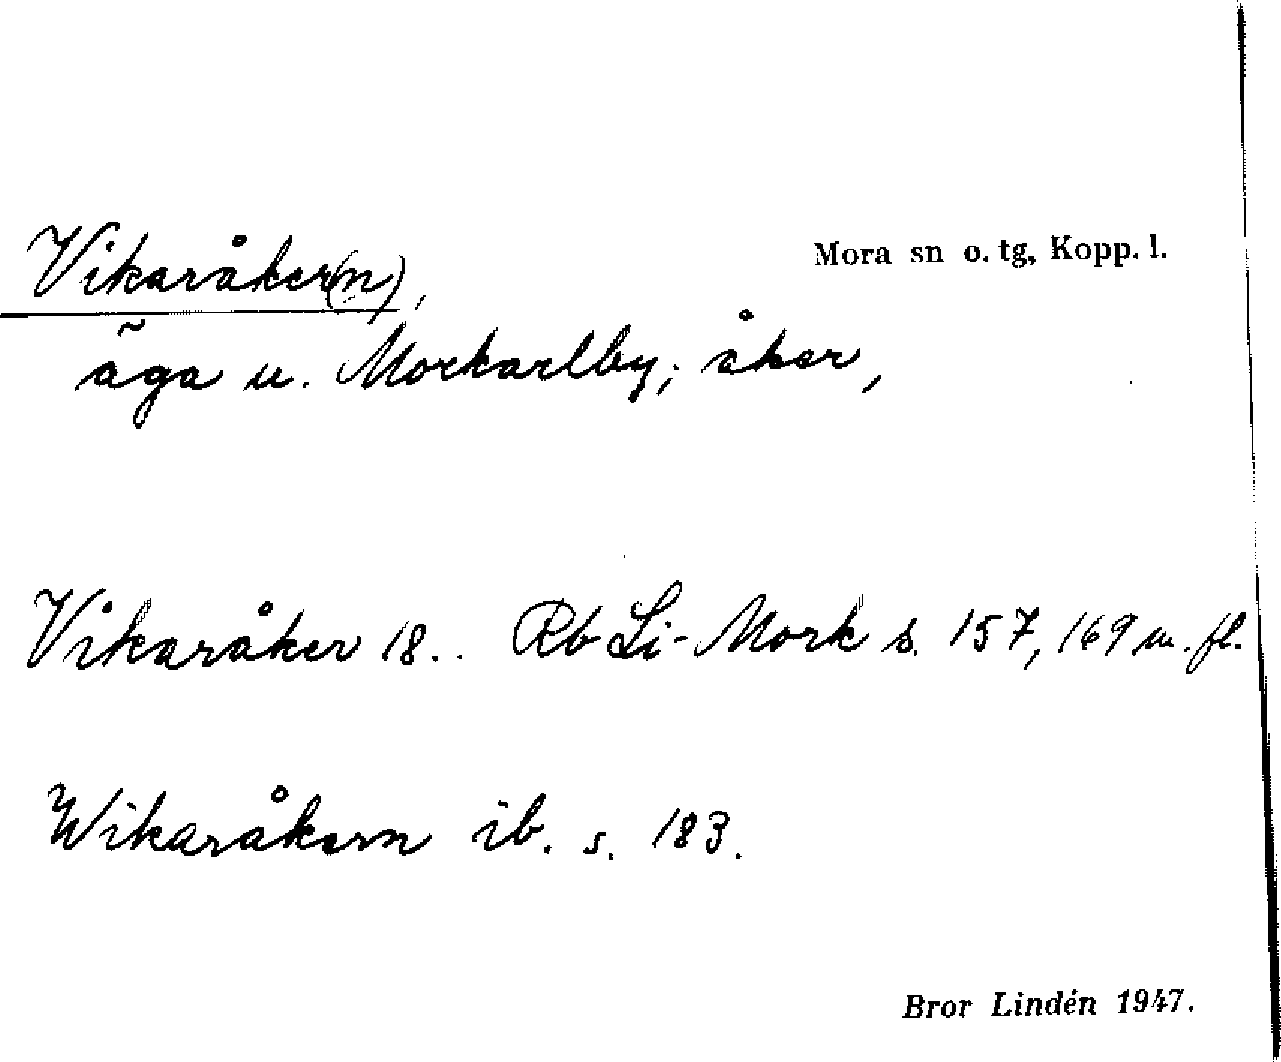 Vikaråker(n),
Mora sn o. tg, Kopp. l.
äga u. Morkarlby; åker,
Vikaråker 18.. Rb Li-Mork s. 157, 169 m. fl.
Wikaråkern ib. s. 183.
Bror Lindén 1947.